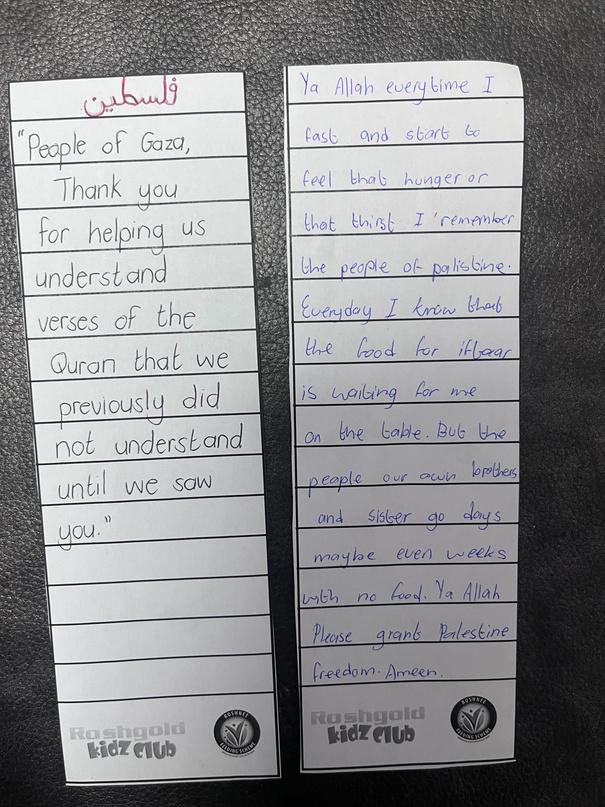 فلسطين
"People of Gaza,
Thank you
for helping us
understand
verses of the
Quran that we
previously did
not understand
until we saw
you."
Roshgold
kidz CLub
ROSHNEE
FEEDING SCHEME
Ya Allah everytime I
fast and start to
feel that hunger or
that thirst I 'remember
the people of palistine.
Everyday I know that
the food for iftaar
is waiting for me
on the table. But the
people our own brothers
and sister go days
maybe even weeks
with no food. Ya Allah
Please grant Palestine
freedom. Ameen.
Roshgold
kidz CLub
ROSHNEE
FEEDING SCHEME